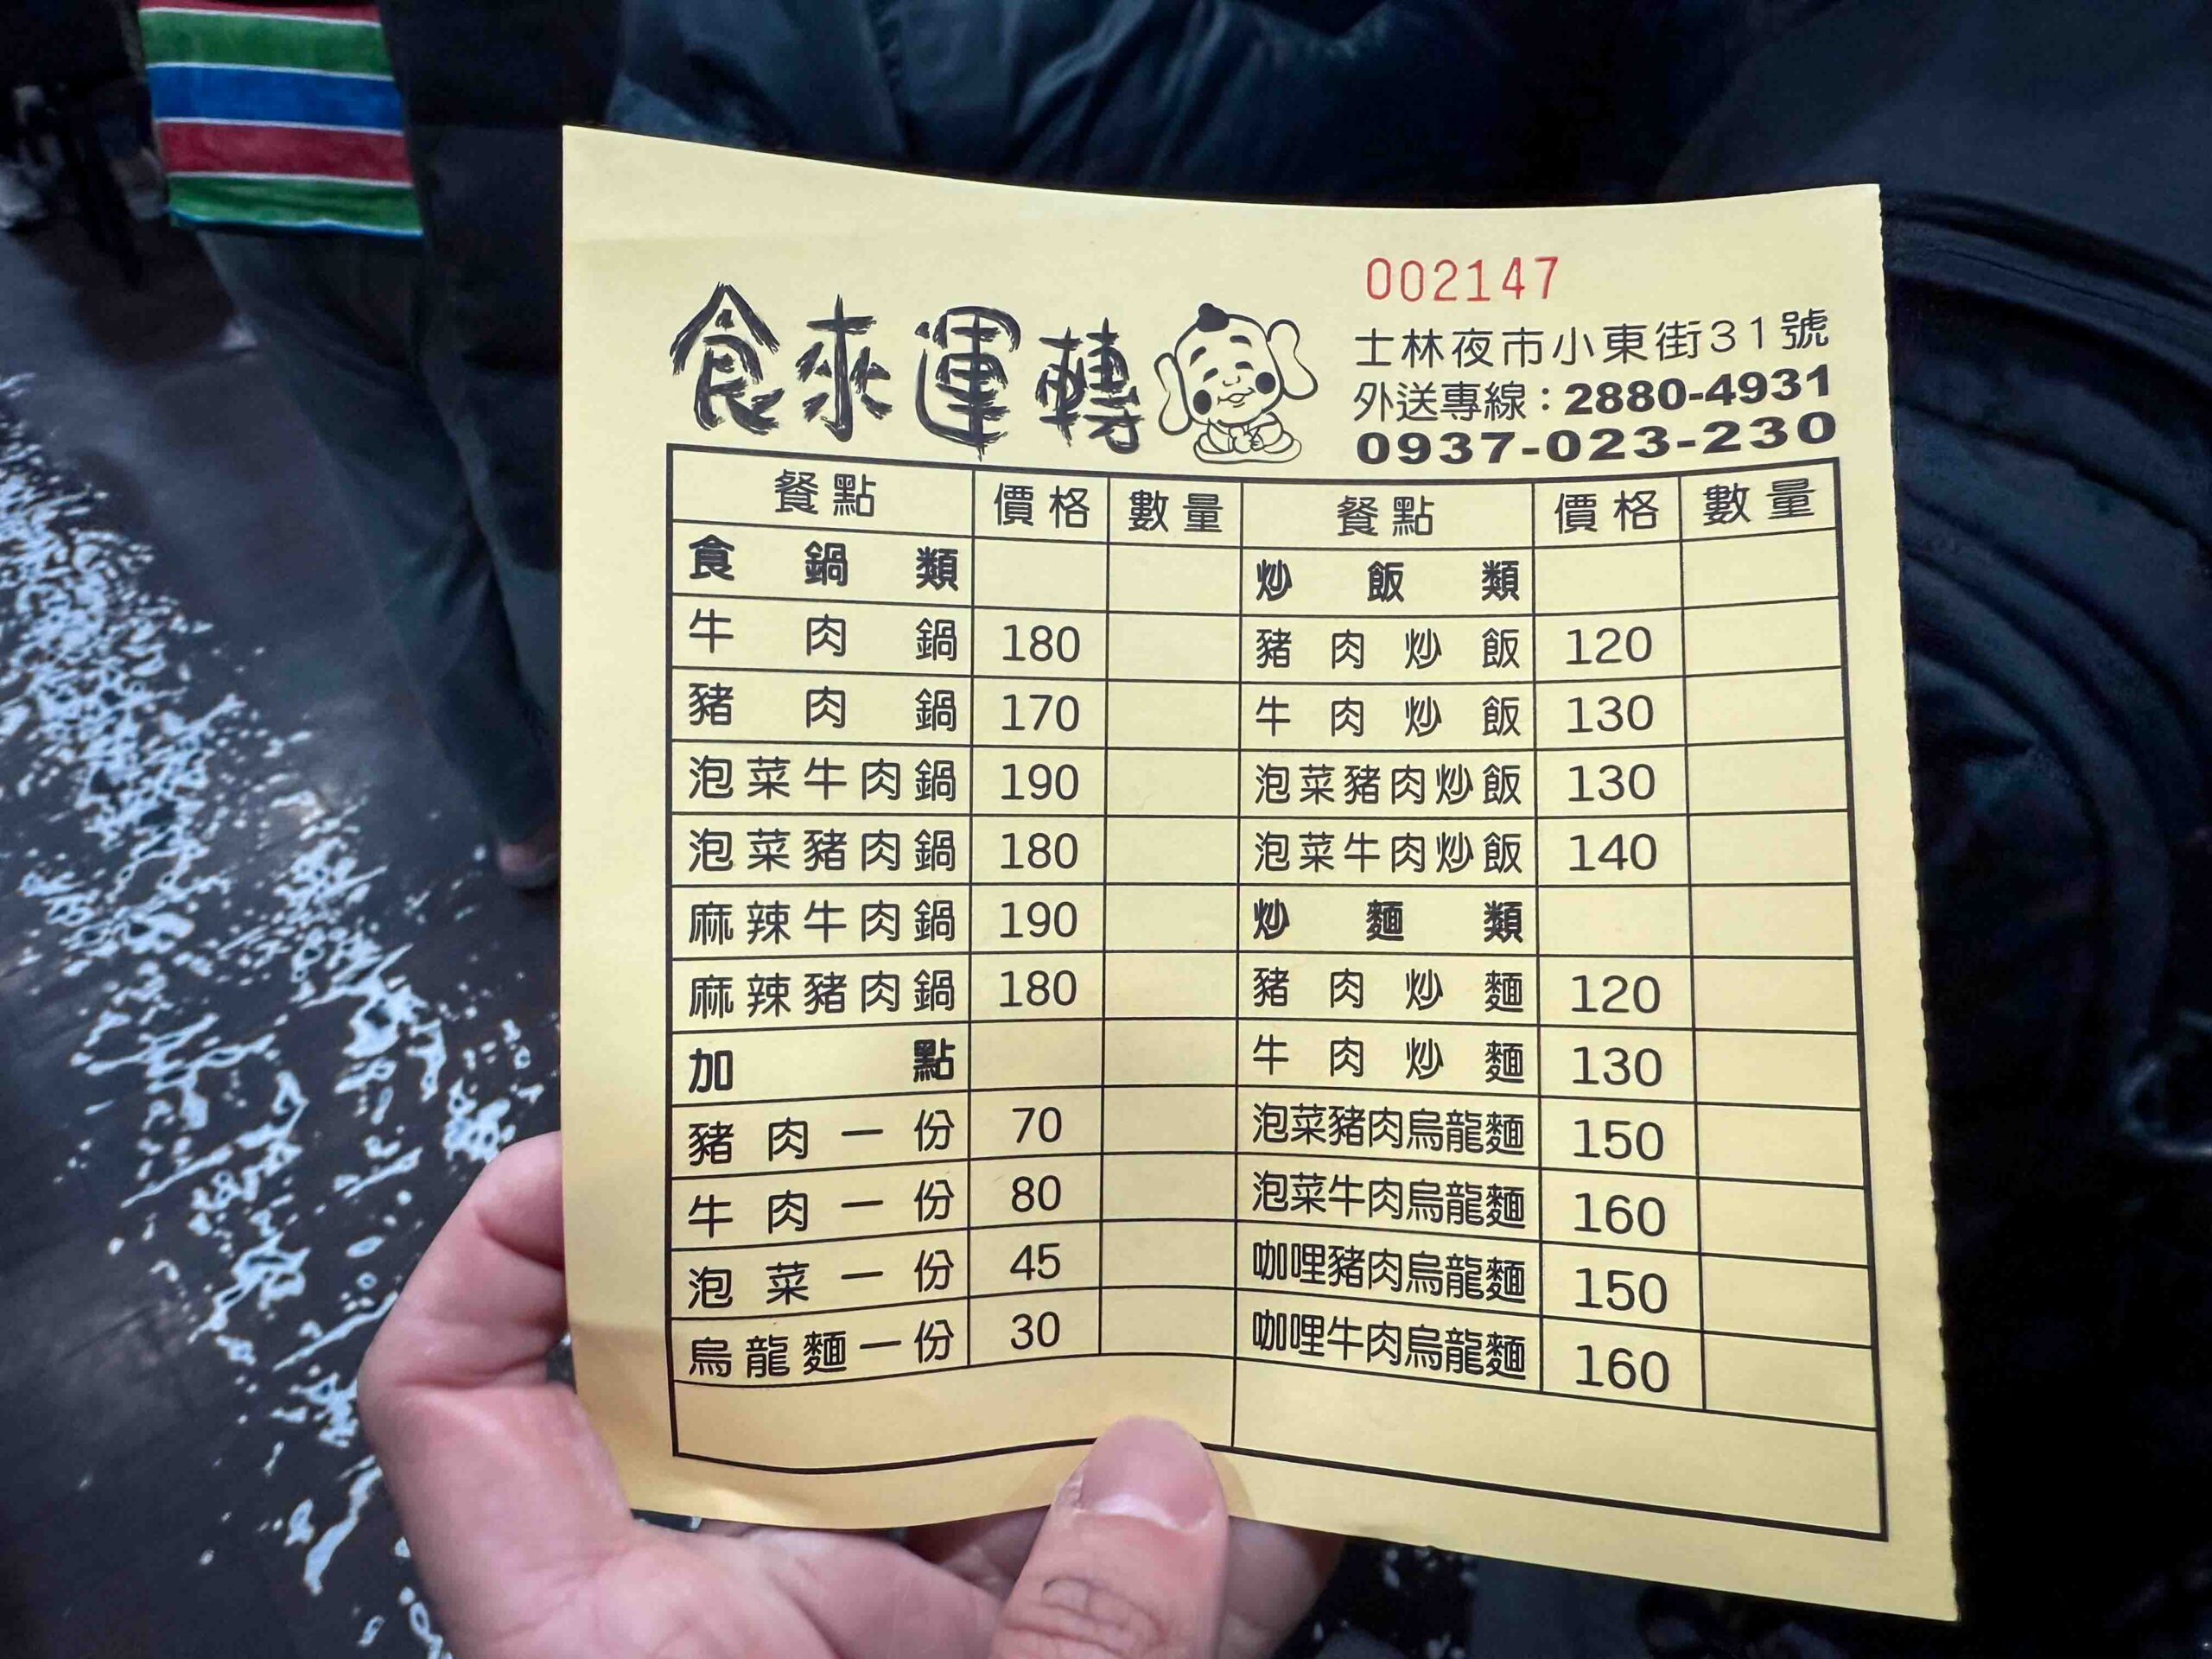 002147
食來運轉
士林夜市小東街31號
外送專線：2880-4931
0937-023-230
餐點 價格 數量 餐點 價格 數量
食鍋類 炒飯類
牛肉鍋 180 豬肉炒飯 120
豬肉鍋 170 牛肉炒飯 130
泡菜牛肉鍋 190 泡菜豬肉炒飯 130
泡菜豬肉鍋 180 泡菜牛肉炒飯 140
麻辣牛肉鍋 190 炒麵類
麻辣豬肉鍋 180 豬肉炒麵 120
加點 牛肉炒麵 130
豬肉一份 70 泡菜豬肉烏龍麵 150
牛肉一份 80 泡菜牛肉烏龍麵 160
泡菜一份 45 咖哩豬肉烏龍麵 150
烏龍麵一份 30 咖哩牛肉烏龍麵 160